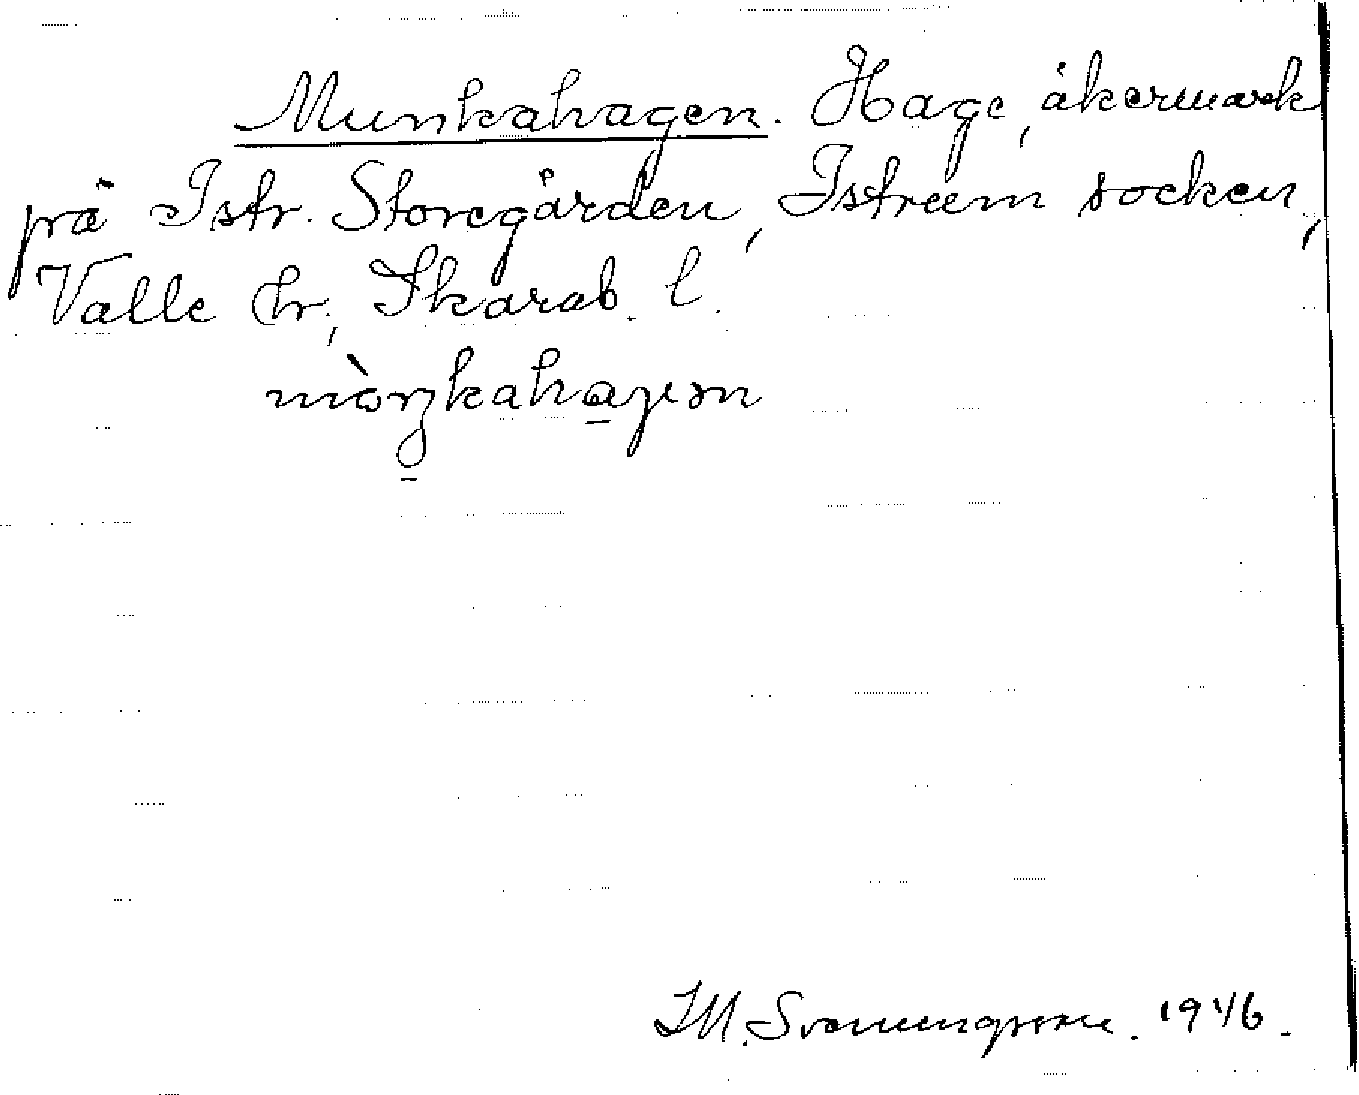 Munkahagen. Hage, åkermark
på Istr. Storegården, Istrum socken,
Valle hr, Skarab. l.
1946.